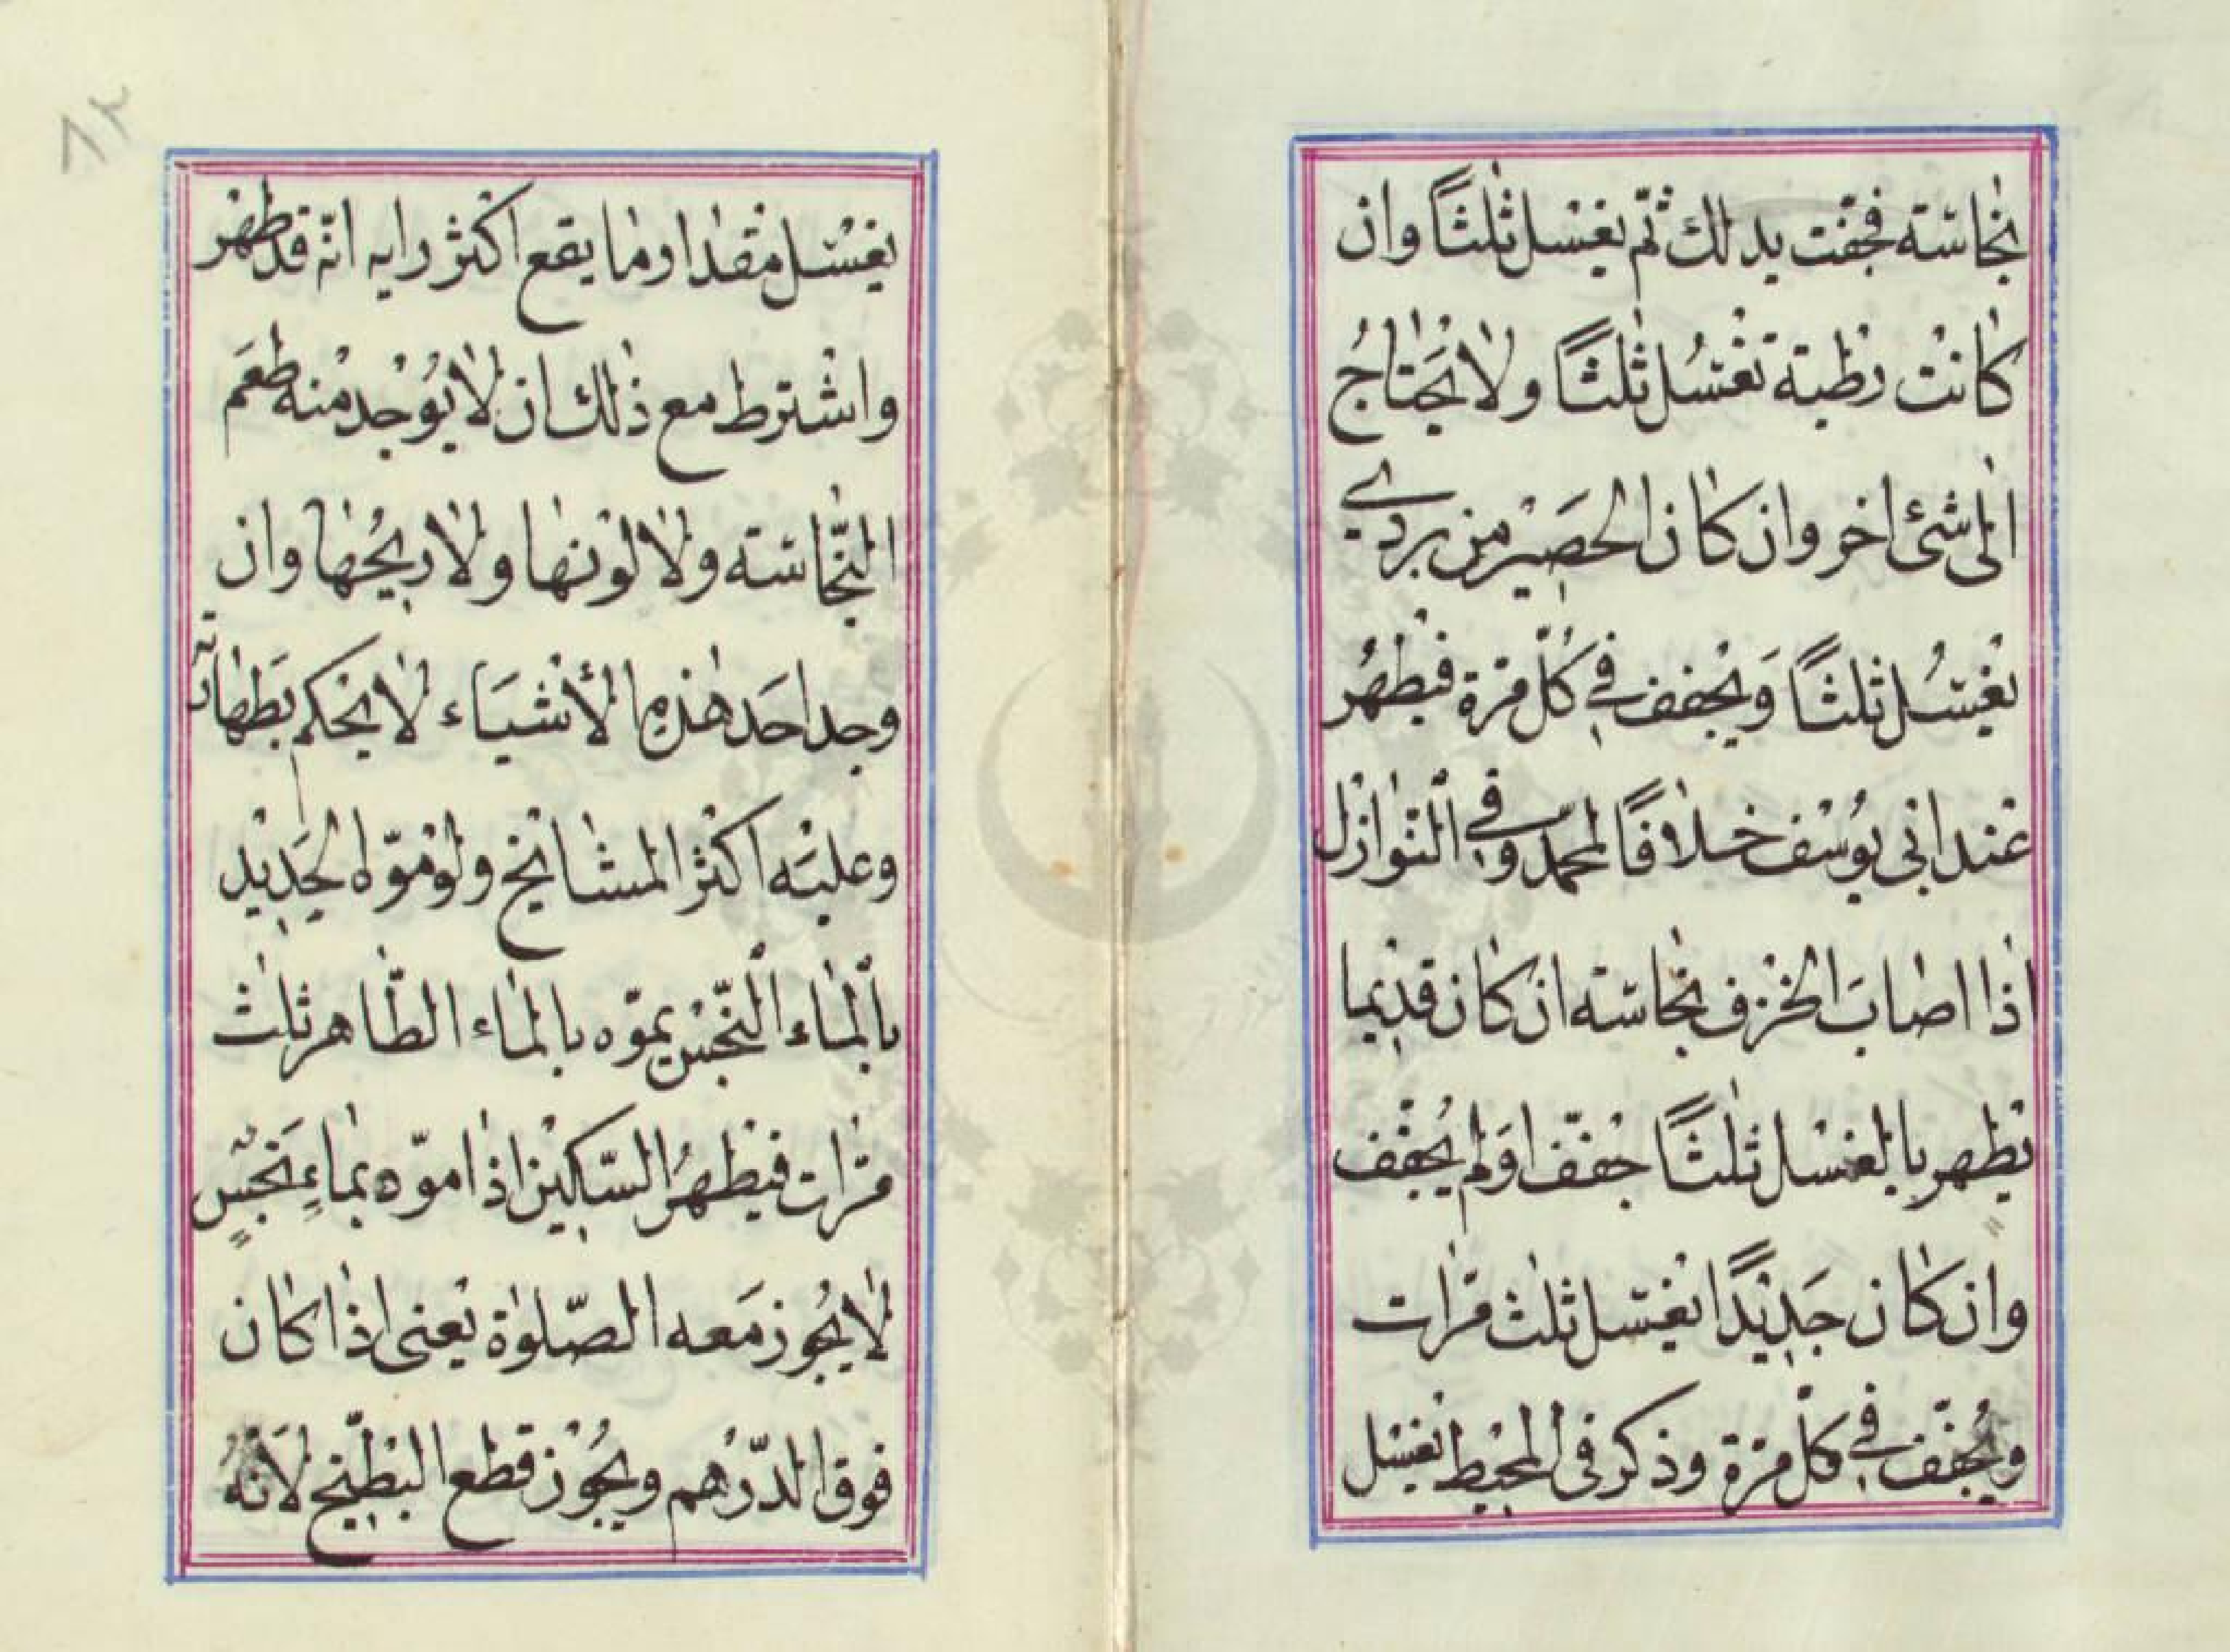 نجاسته فجففت يدلك ثم يغسل ثلثًا وان
كانت رطبة تغسُل ثلثًا ولا يحتاجُ
الى شئ اخر وان كان الحصير من بردي
يغسُل ثلثًا ويجفف في كُلّ مرّة فيطهُر
عند ابى يوُسف خلافًا لمحمد وفي النوازل
اذا اصابَ الخزف نجاسته ان كان قديما
يطهر بالغسل ثلثًا جفّف اوَلم يُجفّف
وان كان جَديدًا يغسل ثلث مرّات
ويُجفّف في كلّ مرّة وذكر فى المحيط يغسل
٨٢
يغسل مقدار ما يقع اكثر رايه انّه قد طهر
واشترط مع ذلك ان لا يُوجد منه طعَم
النّجاسته ولا لونها ولا ريحُها وان
وجد احَد هذه الأشيَاء لا يحكم بَطهارته
وعليَه اكثر المشايخ ولو موّه الحَديد
بالماء النّجس يموّه بالماء الطّاهر ثلث
مرّات فيطهرُ السّكين اذا موّه بماءٍ نَجسٍ
لا يجُوز مَعه الصّلوة يعنى اذا كان
فوق الدّرهم ويجُوز قطع البطّيخ لاَنّهُ